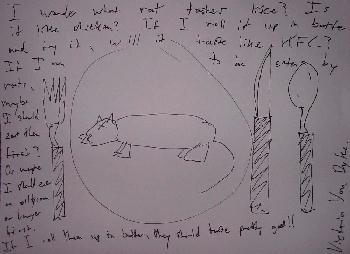 I wonder what rat tastes like? Is
it like chicken? If I roll it up in batter
and fry it, will it taste like KFC?
If I am to be eaten by
rats,
maybe
I should
eat them
first?
Or maybe
I should eat
an
or burger
first.
If I roll them up in batter, they should taste pretty good!!
Victoria Van Dyke.